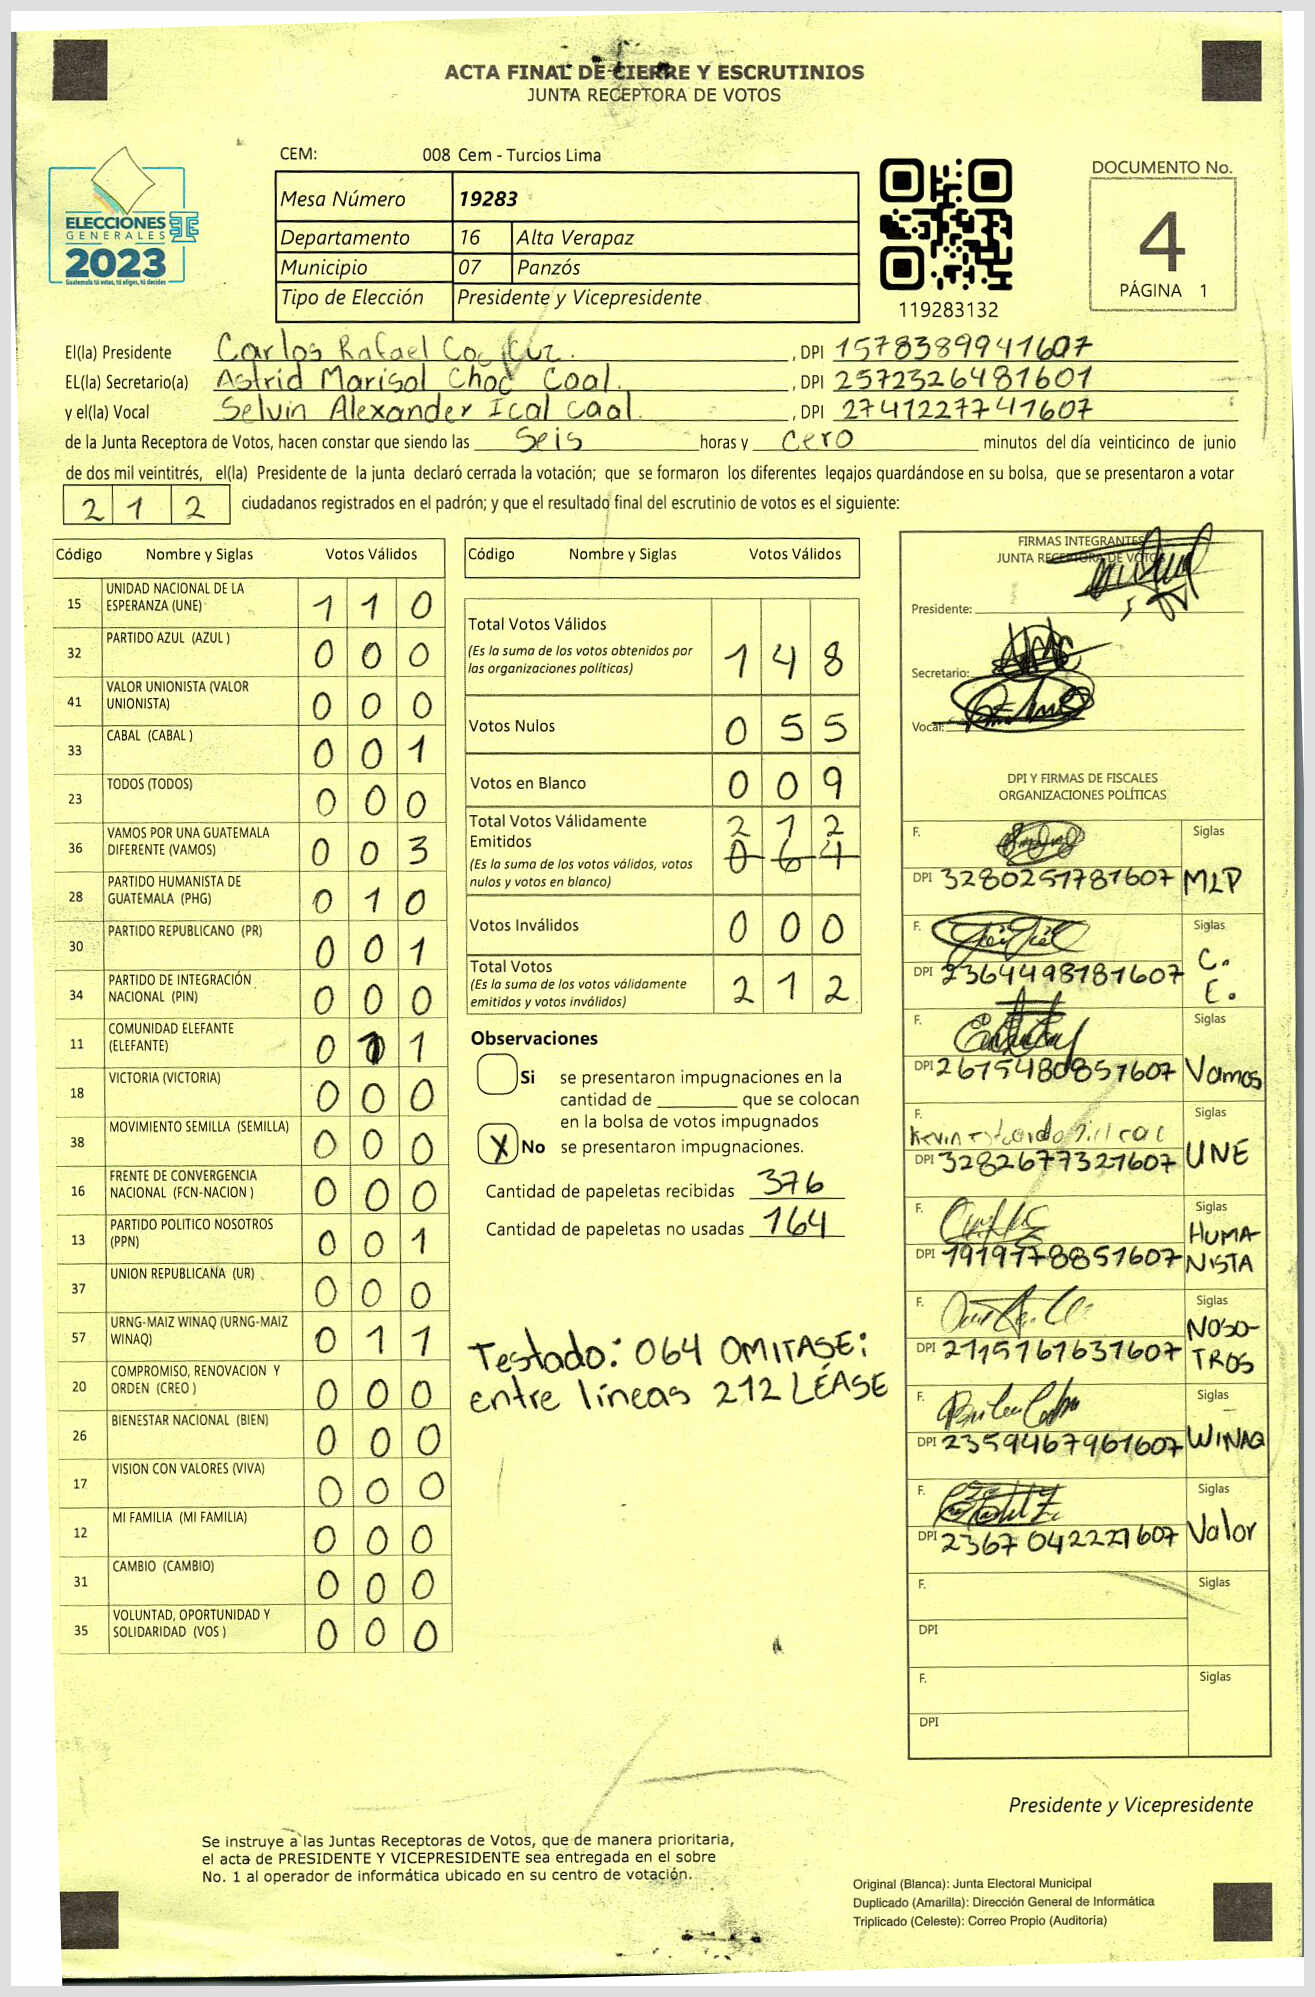 ACTA FINAL DE CIERRE Y ESCRUTINIOS
JUNTA RECEPTORA DE VOTOS
CEM: 008 Cem - Turcios Lima
Mesa Número 19283
Departamento 16 Alta Verapaz
Municipio 07 Panzós
Tipo de Elección Presidente y Vicepresidente
ELECCIONES
GENERALES
2023
Guatemala tú votas, tú eliges, tú decides
119283132
DOCUMENTO No.
4
PÁGINA 1
El(la) Presidente Carlos Rafael , DPI 1578389941607
EL(la) Secretario(a) Astrid Marisol Choc Caal. , DPI 2572326481601
y el(la) Vocal Selvin Alexander Ical Caal. , DPI 2741227741607
de la Junta Receptora de Votos, hacen constar que siendo las Seis horas y cero minutos del día veinticinco de junio
de dos mil veintitrés, el(la) Presidente de la junta declaró cerrada la votación; que se formaron los diferentes legajos quardándose en su bolsa, que se presentaron a votar
212 ciudadanos registrados en el padrón; y que el resultado final del escrutinio de votos es el siguiente:
Código Nombre y Siglas Votos Válidos
15 UNIDAD NACIONAL DE LA ESPERANZA (UNE) 110
32 PARTIDO AZUL (AZUL ) 000
41 VALOR UNIONISTA (VALOR UNIONISTA) 000
33 CABAL (CABAL ) 001
23 TODOS (TODOS) 000
36 VAMOS POR UNA GUATEMALA DIFERENTE (VAMOS) 003
28 PARTIDO HUMANISTA DE GUATEMALA (PHG) 010
30 PARTIDO REPUBLICANO (PR) 001
34 PARTIDO DE INTEGRACIÓN NACIONAL (PIN) 000
11 COMUNIDAD ELEFANTE (ELEFANTE) 011
18 VICTORIA (VICTORIA) 000
38 MOVIMIENTO SEMILLA (SEMILLA) 000
16 FRENTE DE CONVERGENCIA NACIONAL (FCN-NACION ) 000
13 PARTIDO POLITICO NOSOTROS (PPN) 001
37 UNION REPUBLICANA (UR) 000
57 URNG-MAIZ WINAQ (URNG-MAIZ WINAQ) 011
20 COMPROMISO, RENOVACION Y ORDEN (CREO ) 000
26 BIENESTAR NACIONAL (BIEN) 000
17 VISION CON VALORES (VIVA) 000
12 MI FAMILIA (MI FAMILIA) 000
31 CAMBIO (CAMBIO) 000
35 VOLUNTAD, OPORTUNIDAD Y SOLIDARIDAD (VOS ) 000
Código Nombre y Siglas Votos Válidos
Total Votos Válidos 148
(Es la suma de los votos obtenidos por
las organizaciones políticas)
Votos Nulos 055
Votos en Blanco 009
Total Votos Válidamente 212
Emitidos 064
(Es la suma de los votos válidos, votos
nulos y votos en blanco)
Votos Inválidos 000
Total Votos 212
(Es la suma de los votos válidamente
emitidos y votos inválidos)
Observaciones
Si se presentaron impugnaciones en la
cantidad de ________ que se colocan
en la bolsa de votos impugnados
X No se presentaron impugnaciones.
Cantidad de papeletas recibidas 376
Cantidad de papeletas no usadas 164
Testado: 064 OMITASE:
entre líneas 212 LÉASE
FIRMAS INTEGRANTES
JUNTA RECEPTORA DE VOTOS
Presidente:
Secretario:
Vocal:
DPI Y FIRMAS DE FISCALES
ORGANIZACIONES POLÍTICAS
F. Siglas
DPI 3280251781607 MLP
F. Siglas
DPI 2364498181607 C.E.
F. Siglas
DPI 2675480851607 Vamos
F. Kevin Siglas
DPI 3282677321607 UNE
F. Siglas
DPI 1919778851607 HUMANISTA
F. Siglas
DPI 2115761631607 NOSOTROS
F. Siglas
DPI 2359467961607 WINAQ
F. Siglas
DPI 2367042221607 Valor
F. Siglas
DPI
F. Siglas
DPI
Presidente y Vicepresidente
Se instruye a las Juntas Receptoras de Votos, que de manera prioritaria,
el acta de PRESIDENTE Y VICEPRESIDENTE sea entregada en el sobre
No. 1 al operador de informática ubicado en su centro de votación.
Original (Blanca): Junta Electoral Municipal
Duplicado (Amarilla): Dirección General de Informática
Triplicado (Celeste): Correo Propio (Auditoría)